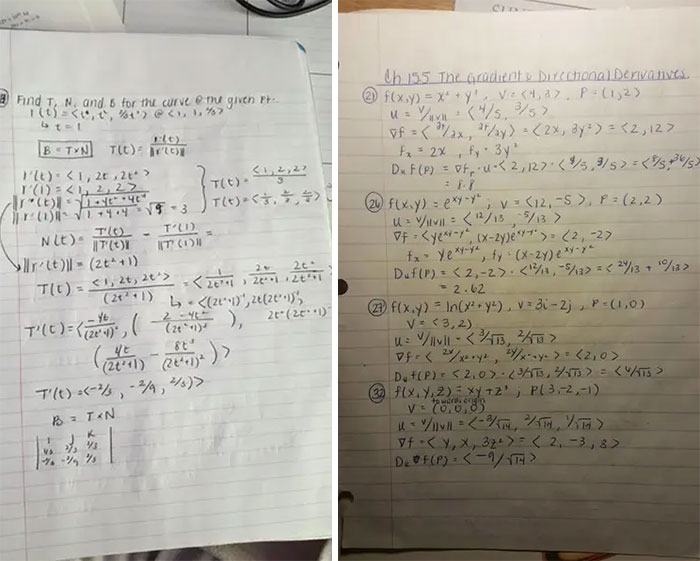 Find T, N, and B for the curve @ the given pt.
↳ t = 1
B = T×N T(t) = r'(t)/||r'(t)||
r'(t) = <1, 2t, 2t²>
r'(1) = <1, 2, 2>
||r'(t)|| = √1+4t²+4t⁴
||r'(1)|| = √1+4+4 = √9 = 3
T(t) = <1, 2, 2>/3
T(t) = <1/3, 2/3, 2/3>
N(t) = T'(t)/||T'(t)|| - T'(1)/||T'(1)|| =
||r'(t)|| = (2t²+1)
T(t) = <1, 2t, 2t²>/(2t²+1) = <1/2t²+1, 2t/2t²+1, 2t²/2t²+1>
↳ = <(2t²+1)⁻¹, 2t(2t²+1)⁻¹,
2t²(2t²+1)⁻¹
T'(t) = <-4t/(2t²+1)², (2-4t²/(2t²+1)²),
(4t/(2t²+1) - 8t³/(2t²+1)²)>
B = T×N
Ch 15.5 The Gradient & Directional Derivatives
21 f(x,y) = x² + y³, V = <4, 3>, P = (1, 2)
u = V/||v|| = <4/5, 3/5>
∇f = <∂f/∂x, ∂f/∂y> = <2x, 3y²> = <2, 12>
fx = 2x, fy = 3y²
Du f(P) = ∇fp · u = <2, 12> · <4/5, 3/5> = <8/5 + 36/5>
= 8.8
f(x,y) = e^xy-y², V = <12, -5>, P = (2,2)
u = V/||v|| = <12/13, -5/13>
∇f = <ye^xy-y², (x-2y)e^xy-y²> = <2, -2>
fx = ye^xy-y², fy = (x-2y)e^xy-y²
Du f(P) = <2, -2> · <12/13, -5/13> = <24/13 + 10/13>
= 2.62
27 f(x,y) = ln(x²+y²), V = 3i - 2j, P = (1,0)
V = <3, 2>
u = V/||v|| = <3/√13, 2/√13>
∇f = <2x/x²+y², 2y/x²+y²> = <2, 0>
Du f(P) = <2, 0> · <3/√13, 2/√13> = <6/√13>
32 f(x,y,z) = xy + z³, P(3, -2, -1)
toward origin
V = (0, 0, 0)
u = V/||v|| = <-3/√14, 2/√14, 1/√14>
∇f = <y, x, 3z²> = <2, -3, 3>
Du f(P) = <-9/√14>